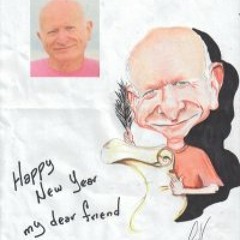 Happy
New Year
my dear friend